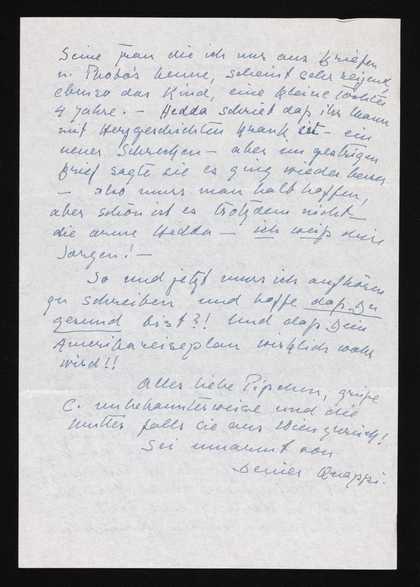 Seine Frau die ich nur aus Briefen
u. Photos kenne, scheint sehr reizend,
ebenso das Kind, eine kleine Tochter
4 Jahre. – Hedda schrieb daß ihr Mann
mit Herzgeschichten krank ist – ein
neuer Schrecken – aber im gestrigen
Brief sagte sie es ging wieder besser
– also muss man halt hoffen,
aber schön ist es trotzdem nicht –
die arme Hedda – ich weiß
Sorgen! –
So und jetzt muss ich aufhören
zu schreiben und hoffe daß Du
gesund bist?! Und daß Dein
Amerikareiseplan wirklich wahr
wird!!
Alles liebe Pipchen, grüße
C. unbekannterweise und die
Mutter falls sie aus Wien zurück!
Sei umarmt von
Deiner Quappi.